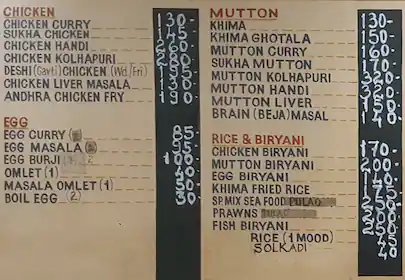 CHICKEN
CHICKEN CURRY 130-
SUKHA CHICKEN 145-
CHICKEN HANDI 260-
CHICKEN KOLHAPURI 280-
DESHI (Gavti) CHICKEN (Wd/Fri) 195-
CHICKEN LIVER MASALA 130-
ANDHRA CHICKEN FRY 190-
EGG
EGG CURRY 85
EGG MASALA 95
EGG BURJI 100
OMLET (1) 40
MASALA OMLET (1) 50
BOIL EGG (2) 30
MUTTON
KHIMA 130-
KHIMA GHOTALA 150-
MUTTON CURRY 160-
SUKHA MUTTON 170-
MUTTON KOLHAPURI 320-
MUTTON HANDI
MUTTON LIVER 150
BRAIN (BEJA) MASAL 140
RICE & BIRYANI
CHICKEN BIRYANI 170-
MUTTON BIRYANI 200-
EGG BIRYANI 140-
KHIMA FRIED RICE 175
SP. MIX SEA FOOD PULAO 250-
PRAWNS 200
FISH BIRYANI 250
RICE (1 MOOD) 45
SOLKADI 40